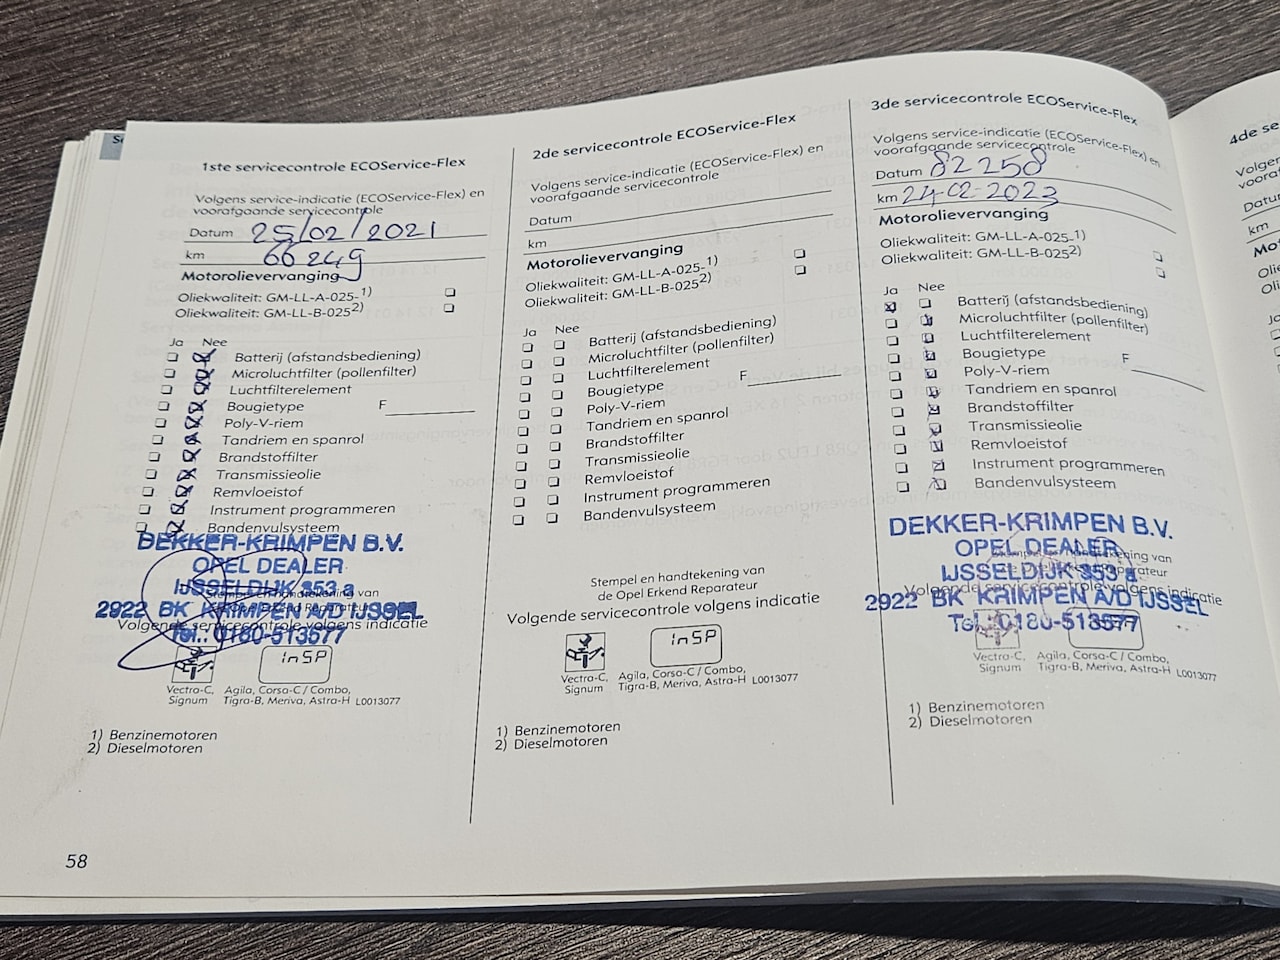 1ste servicecontrole ECOService-Flex
Volgens service-indicatie (ECOService-Flex) en
voorafgaande servicecontrole
Datum 25/02/2021
km 66249
Motorolievervanging
Oliekwaliteit: GM-LL-A-025-1)
Oliekwaliteit: GM-LL-B-0252)
Ja Nee
Batterij (afstandsbediening)
Microluchtfilter (pollenfilter)
Luchtfilterelement
Bougietype F
Poly-V-riem
Tandriem en spanrol
Brandstoffilter
Transmissieolie
Remvloeistof
Instrument programmeren
Bandenvulsysteem
DEKKER-KRIMPEN B.V.
OPEL DEALER
IJSSELDIJK 353 a
Stempel en handtekening van
2922 BK KRIMPEN A/D IJSSEL
Opel Erkend Reparateur
Volgende servicecontrole volgens indicatie
Tel.: 0180-513577
InSP
Vectra-C,
Signum
Agila, Corsa-C / Combo,
Tigra-B, Meriva, Astra-H L0013077
1) Benzinemotoren
2) Dieselmotoren
58
2de servicecontrole ECOService-Flex
Volgens service-indicatie (ECOService-Flex) en
voorafgaande servicecontrole
Datum
km
Motorolievervanging
Oliekwaliteit: GM-LL-A-025-1)
Oliekwaliteit: GM-LL-B-0252)
Ja Nee
Batterij (afstandsbediening)
Microluchtfilter (pollenfilter)
Luchtfilterelement
Bougietype F
Poly-V-riem
Tandriem en spanrol
Brandstoffilter
Transmissieolie
Remvloeistof
Instrument programmeren
Bandenvulsysteem
Stempel en handtekening van
de Opel Erkend Reparateur
Volgende servicecontrole volgens indicatie
InSP
Vectra-C,
Signum
Agila, Corsa-C / Combo,
Tigra-B, Meriva, Astra-H L0013077
1) Benzinemotoren
2) Dieselmotoren
3de servicecontrole ECOService-Flex
Volgens service-indicatie (ECOService-Flex) en
voorafgaande servicecontrole
Datum 82258
km 24-02-2023
Motorolievervanging
Oliekwaliteit: GM-LL-A-025-1)
Oliekwaliteit: GM-LL-B-0252)
Ja Nee
Batterij (afstandsbediening)
Microluchtfilter (pollenfilter)
Luchtfilterelement
Bougietype F
Poly-V-riem
Tandriem en spanrol
Brandstoffilter
Transmissieolie
Remvloeistof
Instrument programmeren
Bandenvulsysteem
DEKKER-KRIMPEN B.V.
OPEL DEALER
IJSSELDIJK 353 a
Volgende servicecontrole volgens indicatie
2922 BK KRIMPEN A/D IJSSEL
Tel.: 0180-513577
Vectra-C,
Signum
Agila, Corsa-C / Combo,
Tigra-B, Meriva, Astra-H L0013077
1) Benzinemotoren
2) Dieselmotoren
4de se
Volgen
vooraf
Datum
km